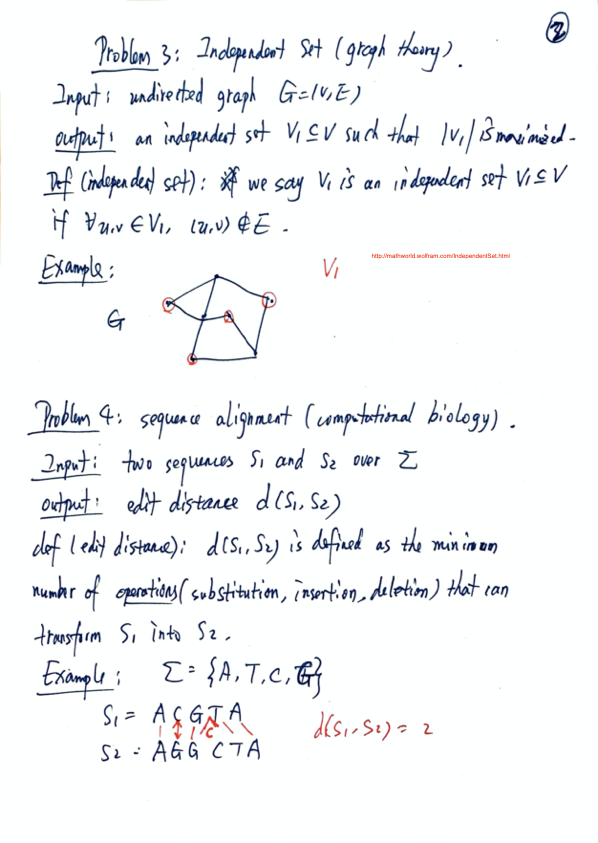 2
Problem 3: Independent Set (graph theory).
Input: undirected graph G=(V,E)
output: an independent set V1⊆V such that |V1| is maximized.
Def (independent set): we say V1 is an independent set V1⊆V
if ∀u,v ∈V1, (u,v)∉E.
Example:
http://mathworld.wolfram.com/IndependentSet.html
V1
G
Problem 4: sequence alignment (computational biology).
Input: two sequences S1 and S2 over Σ
output: edit distance d(S1,S2)
def (edit distance): d(S1,S2) is defined as the minimum
number of operations(substitution, insertion, deletion) that can
transform S1 into S2.
Example: Σ={A,T,C,G}
S1= A C G T A
C
d(S1,S2)= 2
S2= A G G C T A